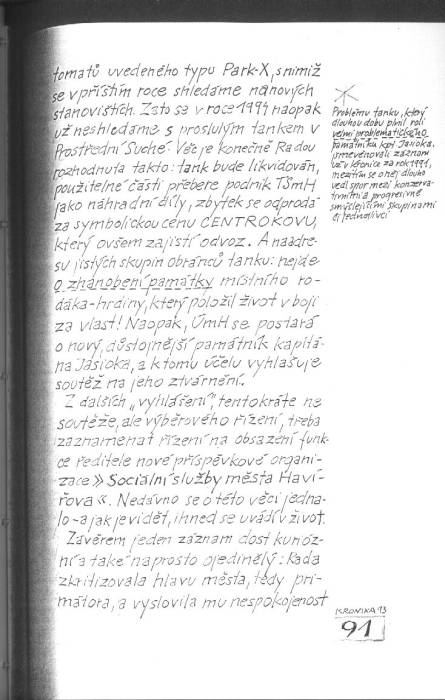 tomatů uvedeného typu Park-X, s nimiž
se v příštím roce shledáme na nových
stanovištích. Zato se v roce 1994 naopak
už neshledáme s proslulým tankem v
Prostřední Suché. Věc je konečně Radou
rozhodnuta takto: tank bude likvidován,
použitelné části přebere podnik TSmH
jako náhradní díly, zbytek se odprodá
za symbolickou cenu CENTROKOVU,
který ovšem zajistí odvoz. A na adre-
su jistých skupin obránců tanku: nejde
o zhanobení památky místního ro-
dáka-hrdiny, který položil život v boji
za vlast! Naopak, ÚmH se postará
o nový, důstojnější památník kapitá-
na Jasioka, a k tomu účelu vyhlašuje
soutěž na jeho ztvárnění.
Z dalších „vyhlášení", tentokráte ne
soutěže, ale výběrového řízení, třeba
zaznamenat řízení na obsazení funk-
ce ředitele nové příspěvkové organi-
zace » Sociální služby města Haví-
řova «. Nedávno se o této věci jedna-
lo - a jak je vidět, ihned se uvádí v život.
Závěrem jeden záznam dost kurióz-
ní a také naprosto ojedinělý: Rada
zkritizovala hlavu města, tedy pri-
mátora, a vyslovila mu nespokojenost
Problému tanku, který
dlouhou dobu plnil roli
velmi problematického
památníku kpt. Jasioka,
jsme věnovali záznam
už v kronice za rok 1991,
mezitím se o něj dlouho
vedl spor mezi konzerva-
tivními a progresivně
smýšlejícími skupinami
či jednotlivci
KRONIKA 93
91